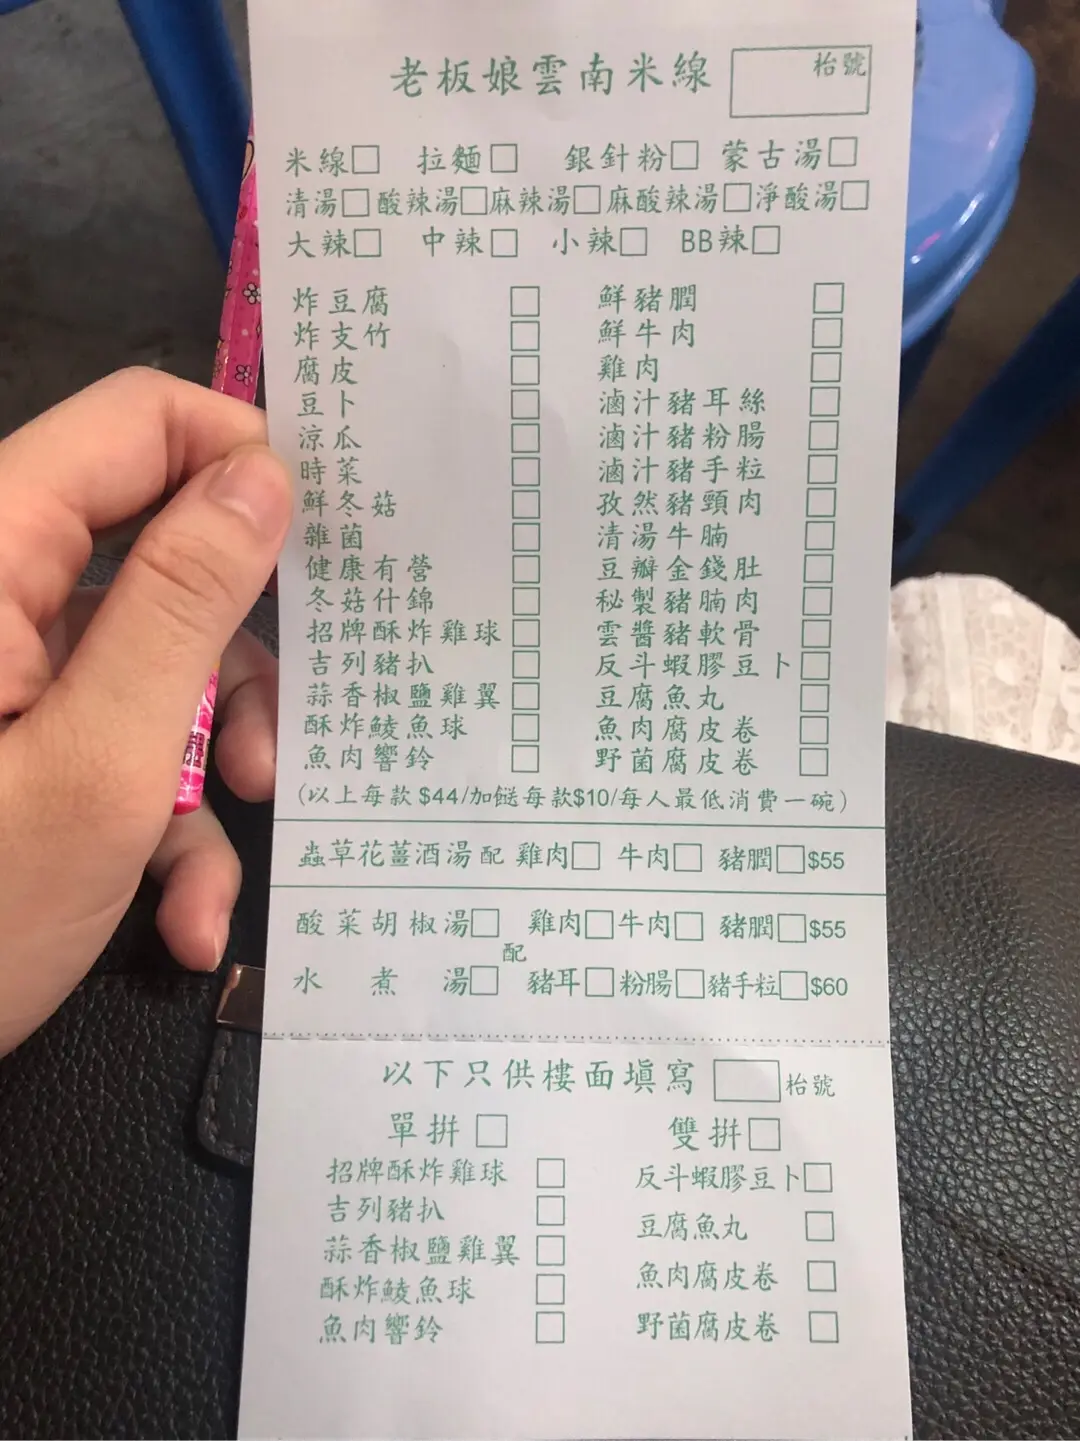 老板娘雲南米線 枱號
米線□ 拉麵□ 銀針粉□ 蒙古湯□
清湯□酸辣湯□麻辣湯□麻酸辣湯□淨酸湯□
大辣□ 中辣□ 小辣□ BB辣□
炸豆腐 □ 鮮豬膶 □
炸支竹 □ 鮮牛肉 □
腐皮 □ 雞肉 □
豆卜 □ 滷汁豬耳絲 □
涼瓜 □ 滷汁豬粉腸 □
時菜 □ 滷汁豬手粒 □
鮮冬菇 □ 孜然豬頸肉 □
雜菌 □ 清湯牛腩 □
健康有營 □ 豆瓣金錢肚 □
冬菇什錦 □ 秘製豬腩肉 □
招牌酥炸雞球 □ 雲醬豬軟骨 □
吉列豬扒 □ 反斗蝦膠豆卜 □
蒜香椒鹽雞翼 □ 豆腐魚丸 □
酥炸鯪魚球 □ 魚肉腐皮卷 □
魚肉響鈴 □ 野菌腐皮卷 □
(以上每款$44/加餸每款$10/每人最低消費一碗)
蟲草花薑酒湯配 雞肉□ 牛肉□ 豬膶□$55
酸菜胡椒湯□ 雞肉□牛肉□ 豬膶□$55
配
水煮湯□ 豬耳□粉腸□豬手粒□$60
以下只供樓面填寫 □枱號
單拼□ 雙拼□
招牌酥炸雞球 □ 反斗蝦膠豆卜□
吉列豬扒 □ 豆腐魚丸 □
蒜香椒鹽雞翼 □ 魚肉腐皮卷 □
酥炸鯪魚球 □ 野菌腐皮卷 □
魚肉響鈴 □